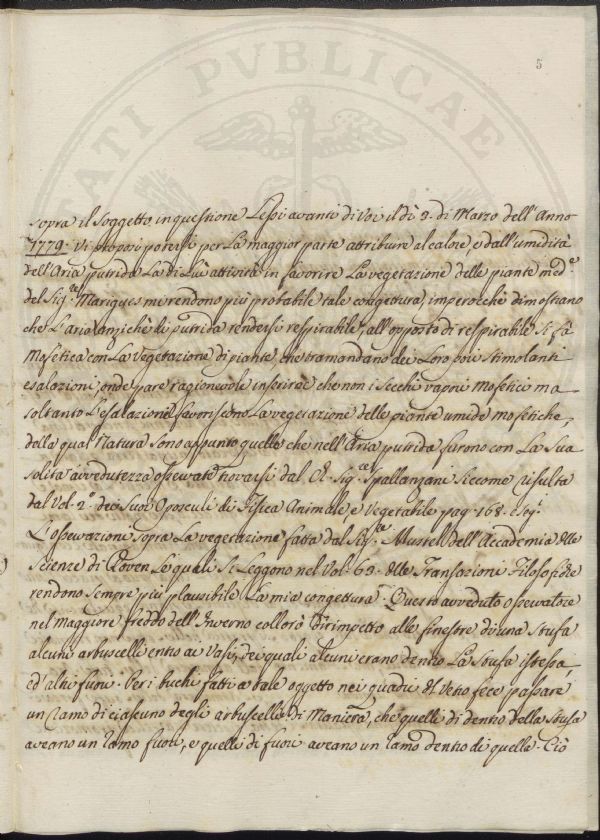 ATI PVBLICAE
5
sopra il Soggetto in questione Lessi avanti di Voi il dì 9. di Marzo dell'Anno
1779. Vi proposi potersi per La maggior parte attribuire al calore, e dall'umidità
dell'Aria putrida La di Lui attività in favorire La vegetazione delle piante med.e
del Sig.re Marigues mi rendono più probabile tale congettura, imperocchè dimostrano
che L'aria anzichè di putrida rendersi respirabile, all'opposto di respirabile si fà
Mofetica con La Vegetazione di piante, che tramandano dei Loro vasi stimolanti
esalazioni, onde pare ragionevole inferire che non i Secchi vapori Mofetici ma
soltanto L'esalazione favoriscono La vegetazione delle piante umide mofetiche,
della qual Natura Sono appunto quelle che nell'Aria putrida furono con La Sua
solita avvedutezza osservate trovarsi dal Ch. Sig.re Spallanzani Siccome risulta
dal Vol. 2.º dei Suoi Opuscoli di Fisica Animale, e Vegetabile pag. 168. e seg.
L'osservazioni sopra La vegetazione fatta dal Sig. Mustel dell'Accademia delle
Scienze di Roven Le quali Si Leggono nel Vol. 63. delle Transazioni Filosofiche
rendono sempre più plausibile La mia congettura. Questo avveduto osservatore
nel maggiore freddo dell'Inverno collocò dirimpetto alle finestre di una Stufa
alcuni arbuscelli entro ai Vasi, dei quali alcuni erano dentro La Stufa istessa,
ed altri fuori. Per i buchi fatti a tale oggetto nei quadri di Vetro fece passare
un ramo di ciascuno degli arbuscelli di Maniera, che quelli di dentro della Stufa
aveano un ramo fuori, e quelli di fuori aveano un ramo dentro di quella. Ciò